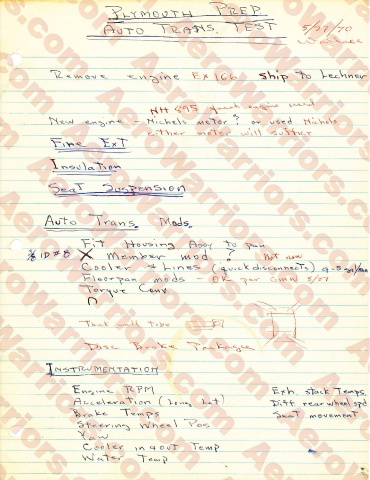 PLYMOUTH PREP
AUTO TRANS. TEST
5/27/70
Remove engine Ex 166 ship to Lechner
NH 895 engine used
New engine - Nichels motor? or used Nichels
either motor will suffice
Fire EXT
Insulation
Seat Suspension
Auto Trans. Mods.
Fit Housing Assy to pan
ID # 8 X Member mod ? Not now
Cooler & Lines (quick disconnects)
Floorpan mods - OK per GMW 5/27
Torque Conv
Disc Brake Package
INSTRUMENTATION
Engine RPM
Exh. stack Temps.
Acceleration (Long, Lat)
Diff rear wheel spd
Brake Temps
Seat movement
Steering Wheel Pos
Yaw
Cooler in & out Temp
Water Temp
AeroWarriors.com